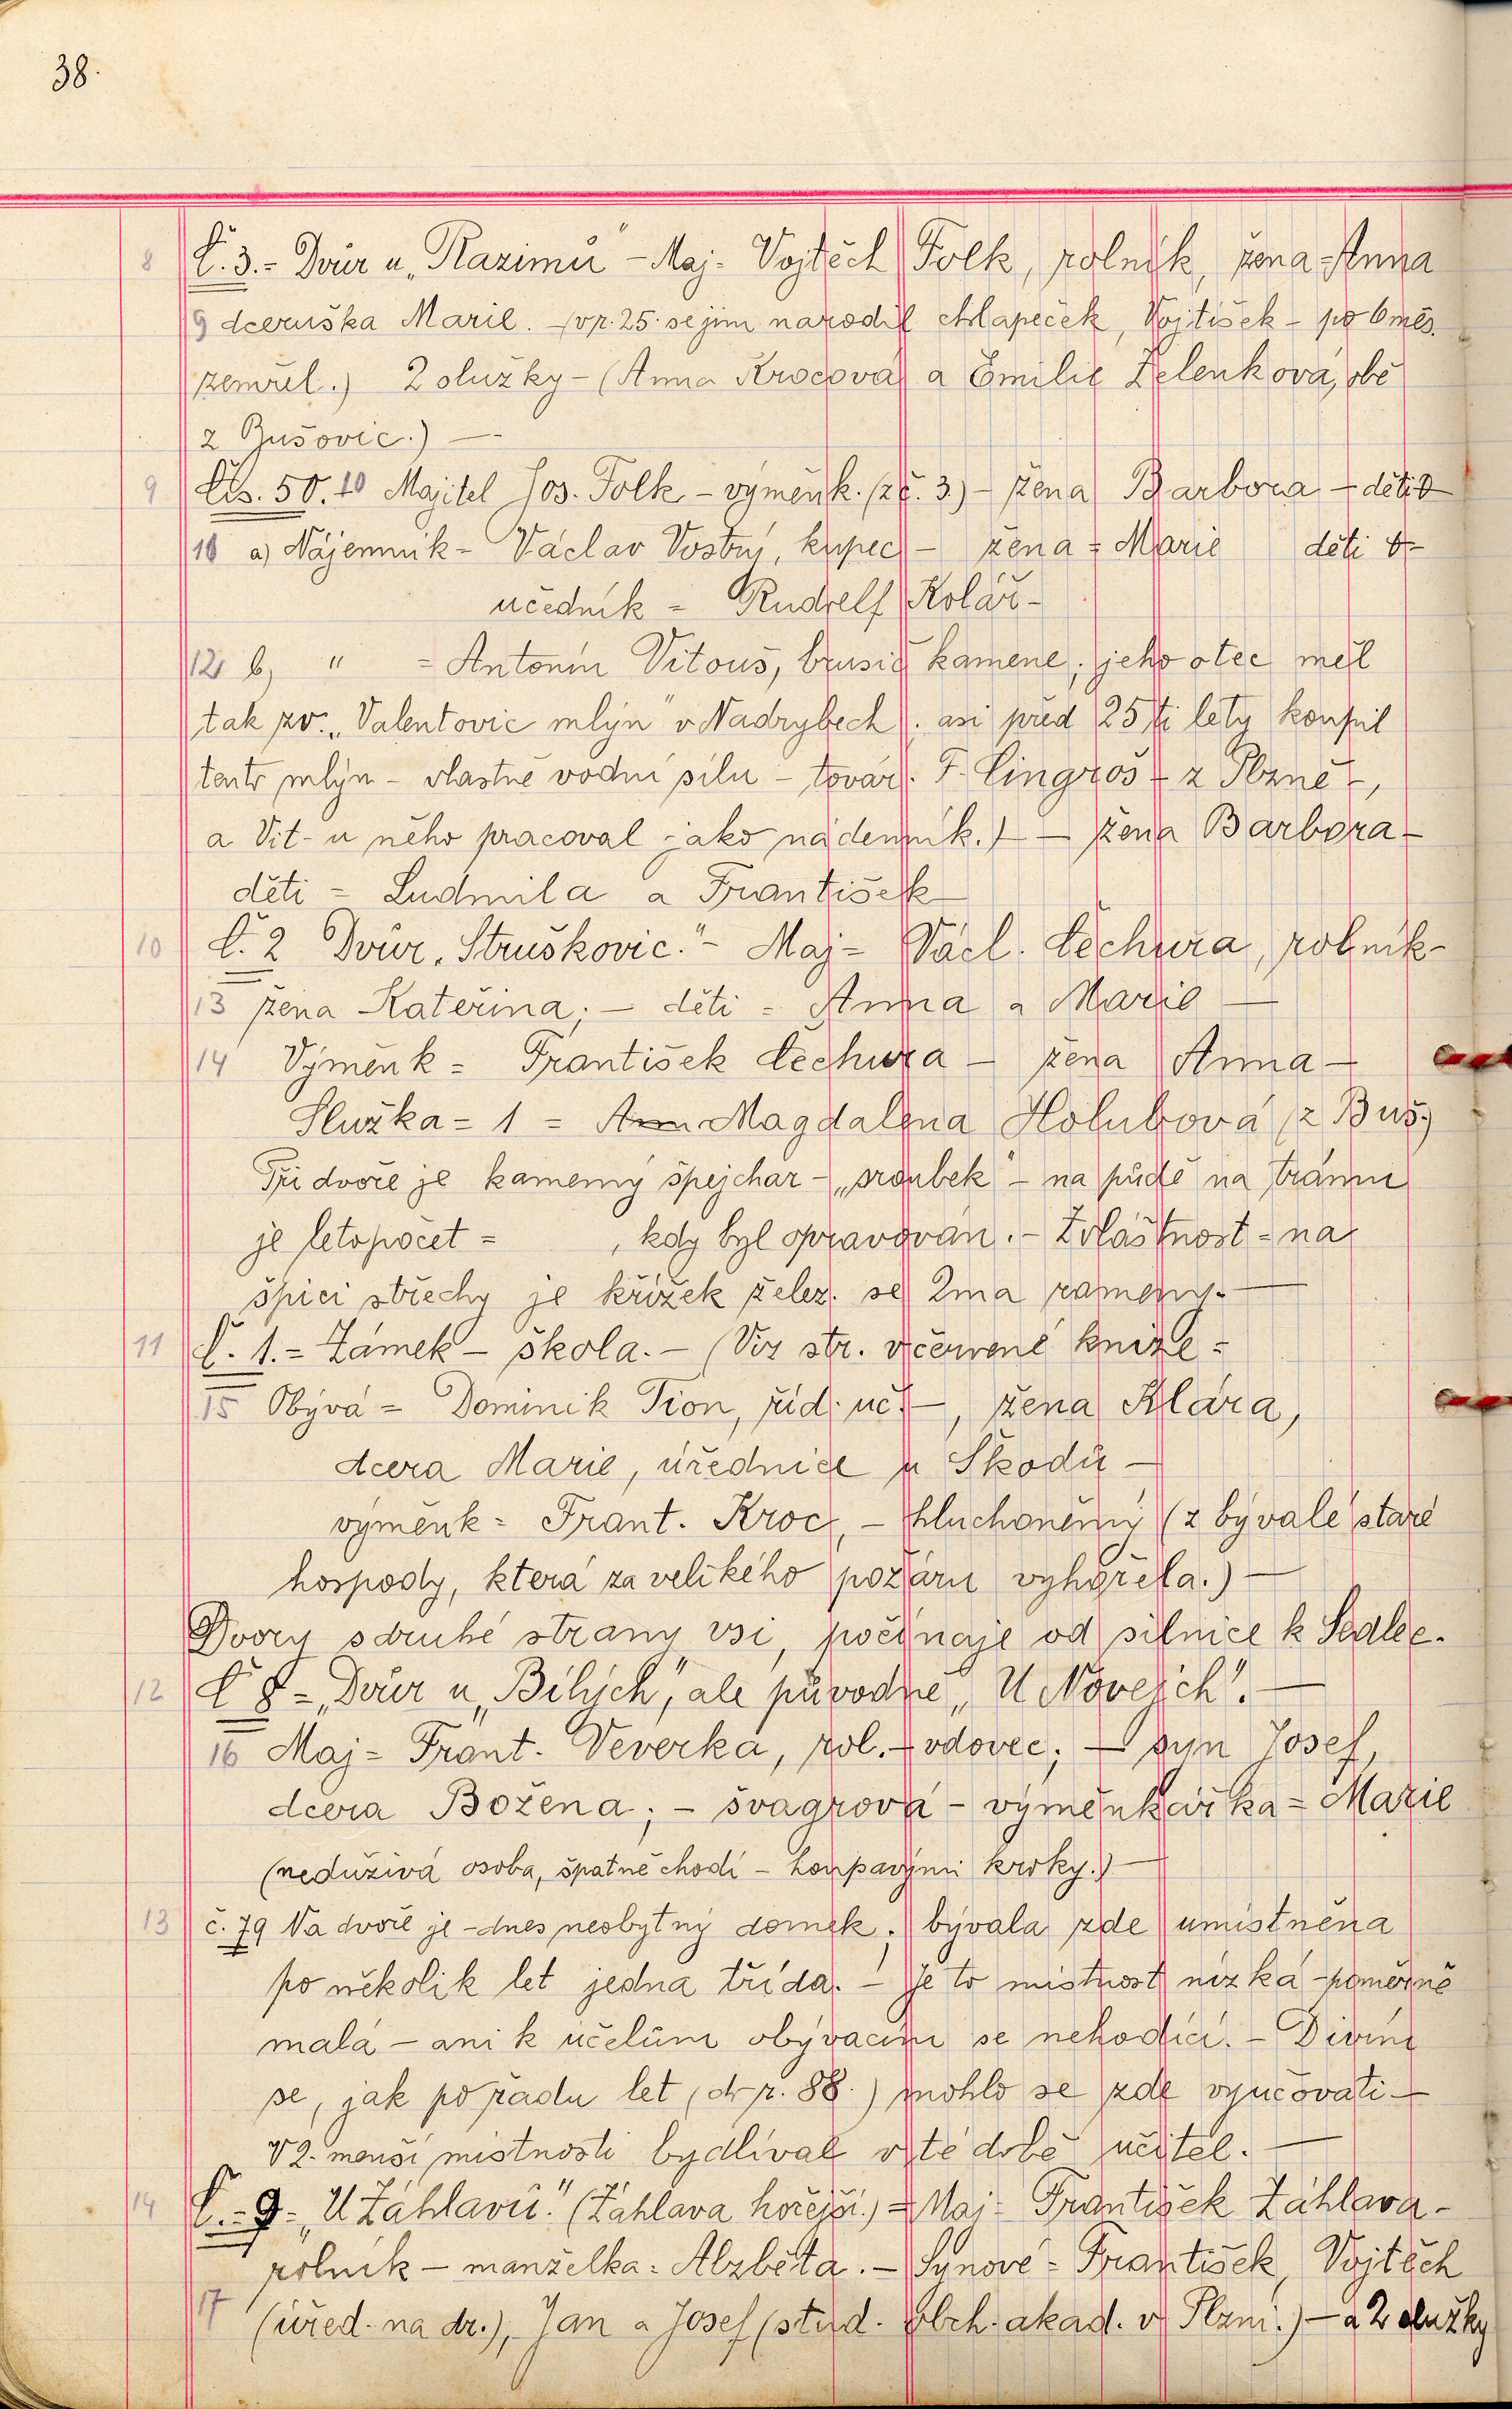 38.
8 Č. 3. = Dvůr u „Razimů" - Maj. - Vojtěch Folk, rolník, žena = Anna
9 dceruška Marie. - (v r. 25. se jim narodil chlapeček, Vojtíšek - po 6 měs.
zemřel.) 2 služky - (Anna Krocová a Emilie Zelenková, obě
z Bušovic.) —
9 Čís. 50. 10 Majitel Jos. Folk - výměnk. (z č. 3.) - žena Barbora - děti 0
a) Nájemník = Václav Vostrý, kupec - žena = Marie děti 0
učedník = Rudolf Kolář -
12 b, " = Antonín Vitouš, brusič kamene; jeho otec měl
tak zv. „Valentovic mlýn" v Nadrybech; asi před 25 ti lety koupil
tento mlýn - vlastně vodní sílu - továr. F. Cingroš - z Plzně -,
a Vit- u něho pracoval jako nádenník.) — žena Barbora -
děti = Ludmila a František
10 Č. 2 Dvůr „Struškovic." - Maj = Václ. Čechura, rolník -
13 žena Kateřina; - děti = Anna a Marie —
14 Výměnk = František Čechura - žena Anna -
Služka = 1 = Ann Magdalena Holubová (z Buš.)
Při dvoře je kamenný špejchar - „sroubek" - na půdě na trámu
je letopočet = , kdy byl opravován. - Zvláštnost = na
špici střechy je křížek želez. se 2ma rameny. —
11 Č. 1. = Zámek - škola. - (Viz str. v červené knize =
15 Obývá = Dominik Tion, říd. uč. -, žena Klára,
dcera Marie, úřednice u Škodů -
výměnk = Frant. Kroc, - hluchoněmý (z bývalé staré
hospody, která za velikého požáru vyhořela.) —
Dvory s druhé strany vsi, počínaje od silnice k Sedlec.
12 Č 8 = „Dvůr u „Bílých", ale původně „U Novejch". —
16 Maj = Frant. Veverka, rol. - vdovec; — syn Josef,
dcera Božena; - švagrová - výměnkářka = Marie
(neduživá osoba, špatně chodí - houpavými kroky.) —
13 č. 79 Na dvoře je - dnes neobytný domek; bývala zde umístněna
po několik let jedna třída. - Je to místnost nízká - poměrně
malá - ani k účelům obývacím se nehodící. - Divím
se, jak po řadu let, (do r. 88.) mohlo se zde vyučovati -
V 2. menší místnosti bydlíval v té době učitel. —
14 Č. - 9 = „U Záhlavů." (Záhlava hořejší.) = Maj = František Záhlava -
rolník - manželka = Alzběta. - Synové = František, Vojtěch
17 (úřed. na dr.), Jan a Josef (stud. obch. akad. v Plzni.) - a 2 služky